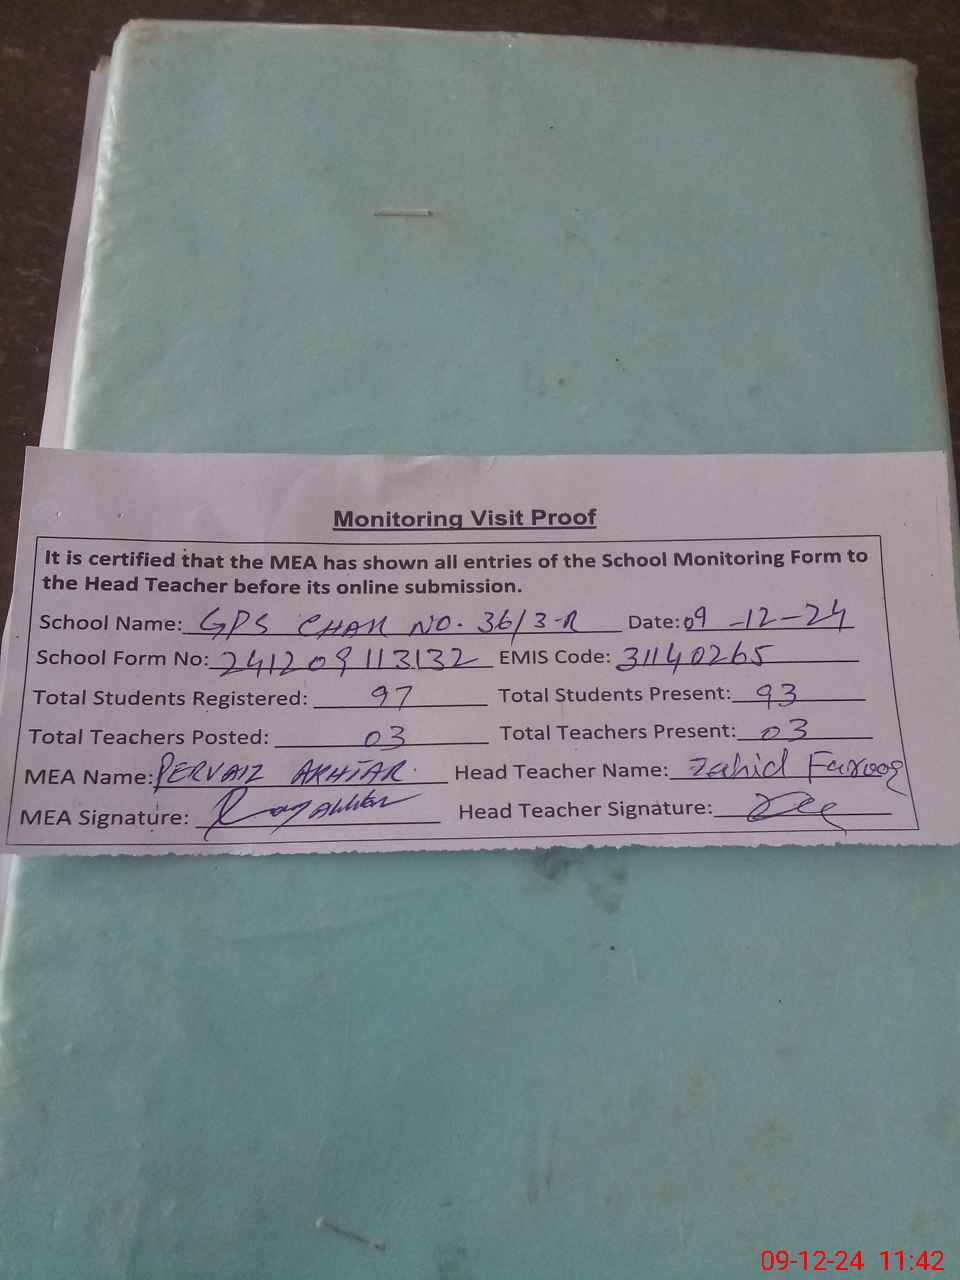 Monitoring Visit Proof
It is certified that the MEA has shown all entries of the School Monitoring Form to
the Head Teacher before its online submission.
School Name: GPS CHAK NO. 36/3-R Date: 09-12-24
School Form No: 241209113132 EMIS Code: 31140265
Total Students Registered: 97 Total Students Present: 93
Total Teachers Posted: 03 Total Teachers Present: 03
MEA Name: PERVAIZ AKHTAR. Head Teacher Name: Zahid Farooq
MEA Signature: Head Teacher Signature:
09-12-24 11:42